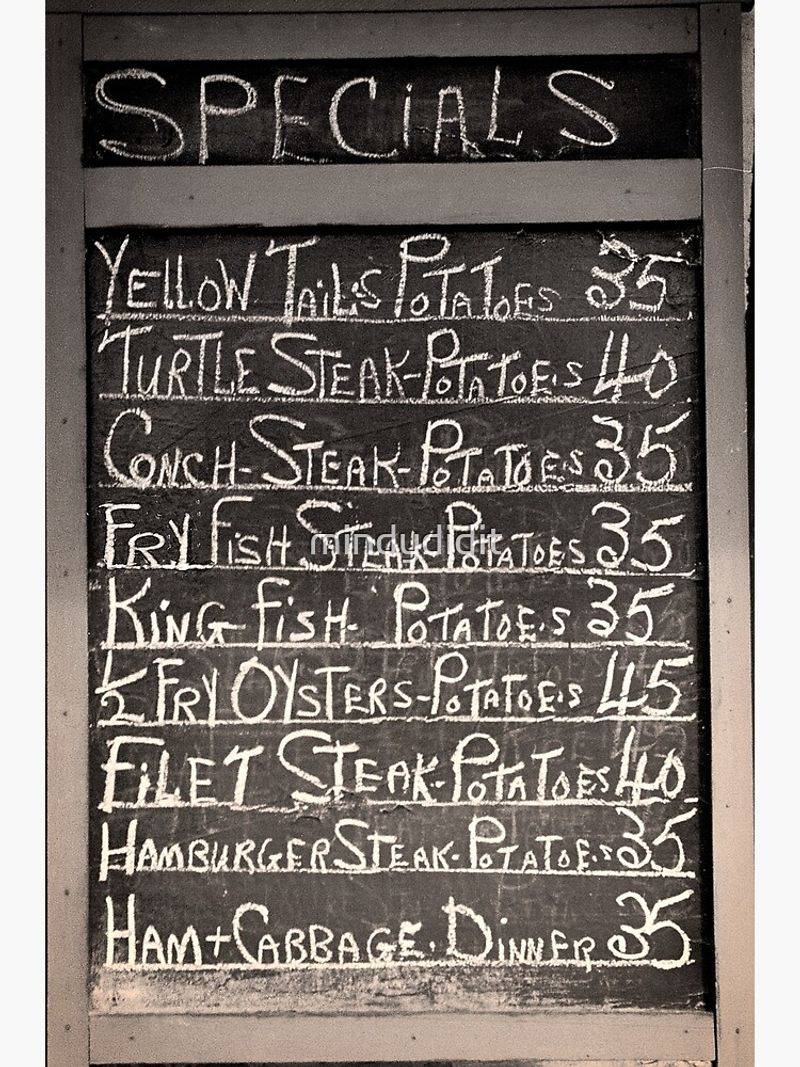 SPECIALS
YELLOW TAILS POTATOES 35
TURTLE STEAK-POTATOES 40
CONCH-STEAK-POTATOES 35
FRY FISH STEAK POTATOES 35
mindydidit
KING FISH- POTATOES 35
1/2 FRY OYSTERS-POTATOES 45
FILET STEAK-POTATOES 40
HAMBURGER STEAK-POTATOES 35
HAM+CABBAGE. DINNER 35